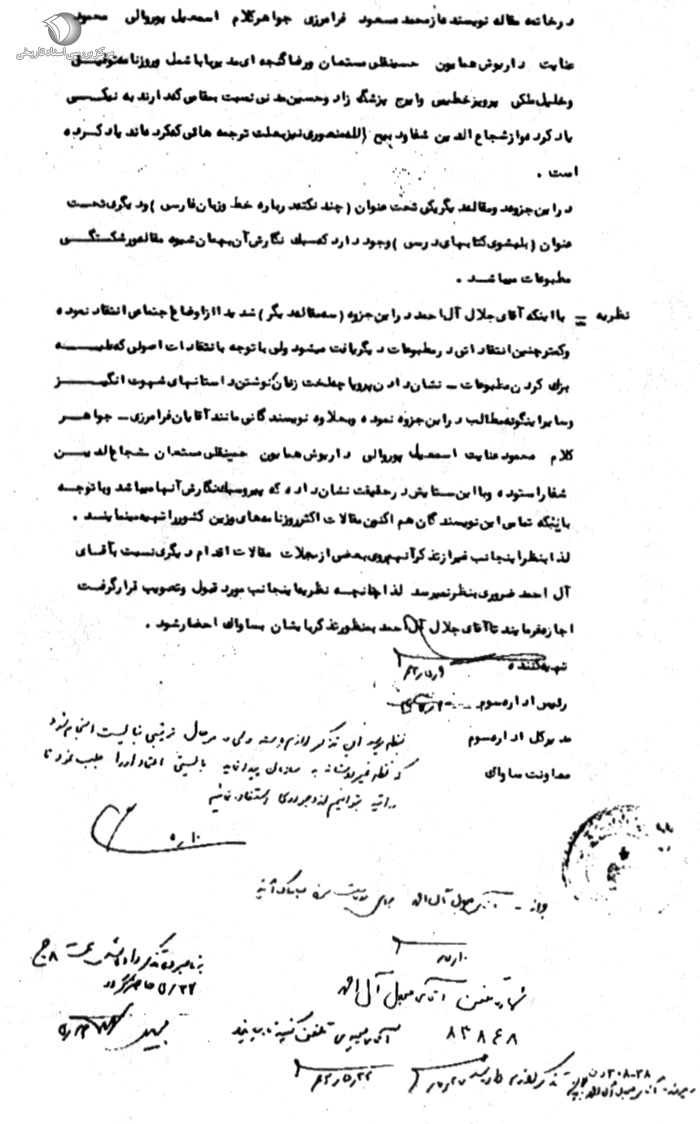 مرکز بررسی اسناد تاریخی
در خاتمه مقاله نویسنده از محمد مسعود فرامرزی جواهرکلام اسمعیل پوروالی محمود
عنایت داریوش همایون حسینقلی مستعان ورضا گنجه ای مدیر باباشمل وروزنامه توفیق
وخلیل ملکی پرویز خطیبی وایرج پزشگ زاد وحسین مدنی نسبت بمقامی که دارند به نیکی
یاد کرده و از شجاع الدین شفا و ذبیح الله منصوری نیز بعلت ترجمه هائی که کرده اند یاد کرده
است .
در این جزوه دو مقاله دیگر یکی تحت عنوان ( چند نکته درباره خط وزبان فارسی ) ودیگری تحت
عنوان ( بلبشوی کتابهای درسی ) وجود دارد که سبک نگارش آن بهمان شیوه مقاله ورشکستگی
مطبوعات میباشد .
نظریه = با اینکه آقای جلال آل احمد در این جزوه ( سه مقاله دیگر ) شدیدا از اوضاع اجتماعی انتقاد نموده
وکمتر چنین انتقاداتی در مطبوعات دیگر یافت میشود ولی با توجه بانتقادات اصولی که علیه
بزک کردن مطبوعات - نشان دادن پروپا چه لخت زنان نوشتن داستانهای شهوت انگیز
وسایر اینگونه مطالب در این جزوه نموده وبعلاوه نویسندگانی مانند آقایان فرامرزی - جواهر
کلام محمود عنایت اسمعیل پوروالی داریوش همایون حسینقلی مستعان شجاع الدین
شفا را ستوده وبا این ستایش در حقیقت نشان داده که پیرو سبک نگارش آنها میباشد وبا توجه
باینکه تمامی این نویسندگان هم اکنون مقالات اکثر روزنامه های وزین کشور را تهیه مینمایند .
لذا بنظر اینجانب غیر از تذکر آنهم روی بعضی از مجلات مقالات اقدام دیگری نسبت بآقای
آل احمد ضروری بنظر نمیرسد لذا چنانچه نظریه اینجانب مورد قبول وتصویب قرار گرفت
اجازه فرمایند تا آقای جلال آل احمد بمنظور تذکر بایشان بساواک احضار شود .
تهیه کننده
رئیس اداره سوم
مدیرکل اداره سوم
معاونت ساواک
نظریه این تذکر لازم است ولی در هر حال ترتیبی میبایست انجام شود
که نظر به سازمان پیدا نماید بایستی اعتماد او را جلب نمود تا
در آتیه بتوانیم از وجود وی استفاده نمائیم
آقای جلال آل احمد
شماره تلفن آقای جلال آل احمد
۸۳۸۶۸
آقای تلفن کنید بیایند
بنامبرده تذکر داده شد ساعت ۸ صبح
حاضر گردد
تذکر لازم داده شد